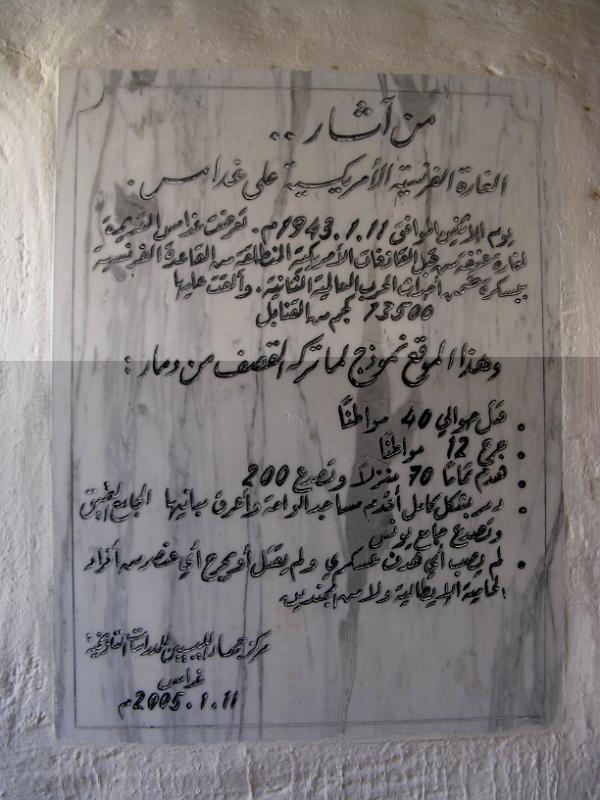 من آثار ..
الغارة الفرنسية الأمريكية على غدامس .
يوم الاثنين الموافق 1943.1.11م . تعرضت غدامس القديمة
لغارة عنيفة من قبل القاذفات الأمريكية المنطلقة من القاعدة الفرنسية
ببسكرة ضمن أحداث الحرب العالمية الثانية . وألقت عليها
13500 كجم من القنابل
وهذا الموقع نموذج لما تركه القصف من دمار :
• قتل حوالي 40 مواطنًا
• جرح 12 مواطنًا
• هدم تمامًا 70 منزلًا وتصدع 200
• دمر بشكل كامل أقدم مساجد الواحة وأعرق مبانيها الجامع العتيق
وتصدع جامع يونس
• لم يصب أي هدف عسكري ولم يقتل أو يجرح أي عنصر من أفراد
الحامية الإيطالية ولا من المجندين
مركز جهاد الليبيين للدراسات التاريخية
غدامس
2005.1.11م